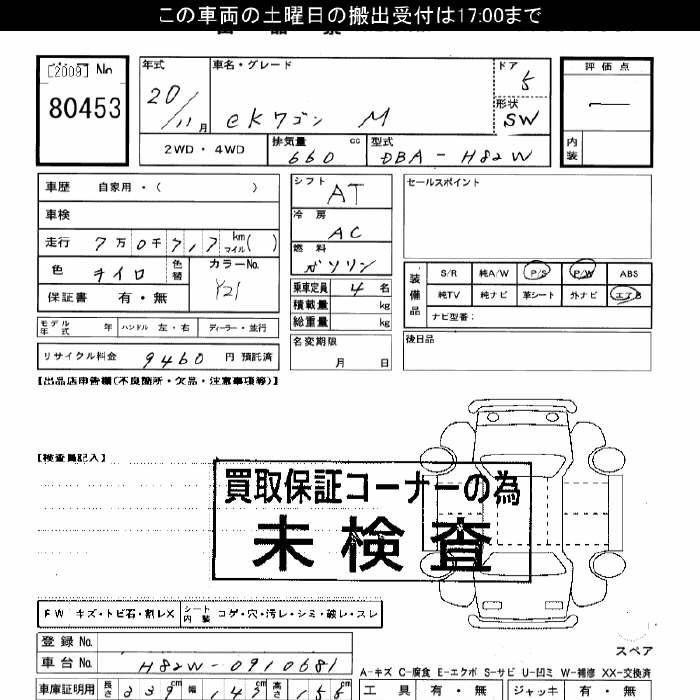 この車両の土曜日の搬出受付は17:00まで
[2009] No
80453
年式
20/11月
車名・グレード
eKワゴン M
ドア
5
形状
SW
評価点
内装
2WD・4WD
排気量 660 cc
型式 DBA-H82W
車歴 自家用・( )
車検
走行 7万0千717 km マイル( )
色 キイロ 色替
カラーNo. Y21
保証書 有・無
シフト
AT
冷房
AC
燃料
ガソリン
乗車定員 4名
積載量 kg
総重量 kg
セールスポイント
装備品
S/R 純A/W P/S P/W ABS
純TV 純ナビ 革シート 外ナビ エアB
ナビ型番:
モデル年式 年 ハンドル 左・右 ディーラー・並行
リサイクル料金 9460 円 預託済
名変期限
月 日
後日品
【出品店申告欄(不良箇所・欠品・注意事項等)】
【検査員記入】
買取保証コーナーの為
未検査
FW キズ・トビ石・割レX シート内装 コゲ・穴・汚レ・シミ・破レ・スレ
登録No.
車台No. H82W-0910681
スペア
A-キズ C-腐食 E-エクボ S-サビ U-凹ミ W-補修 XX-交換済
車庫証明用 長さ 339cm 幅 147cm 高さ 155cm
工具 有・無 ジャッキ 有・無